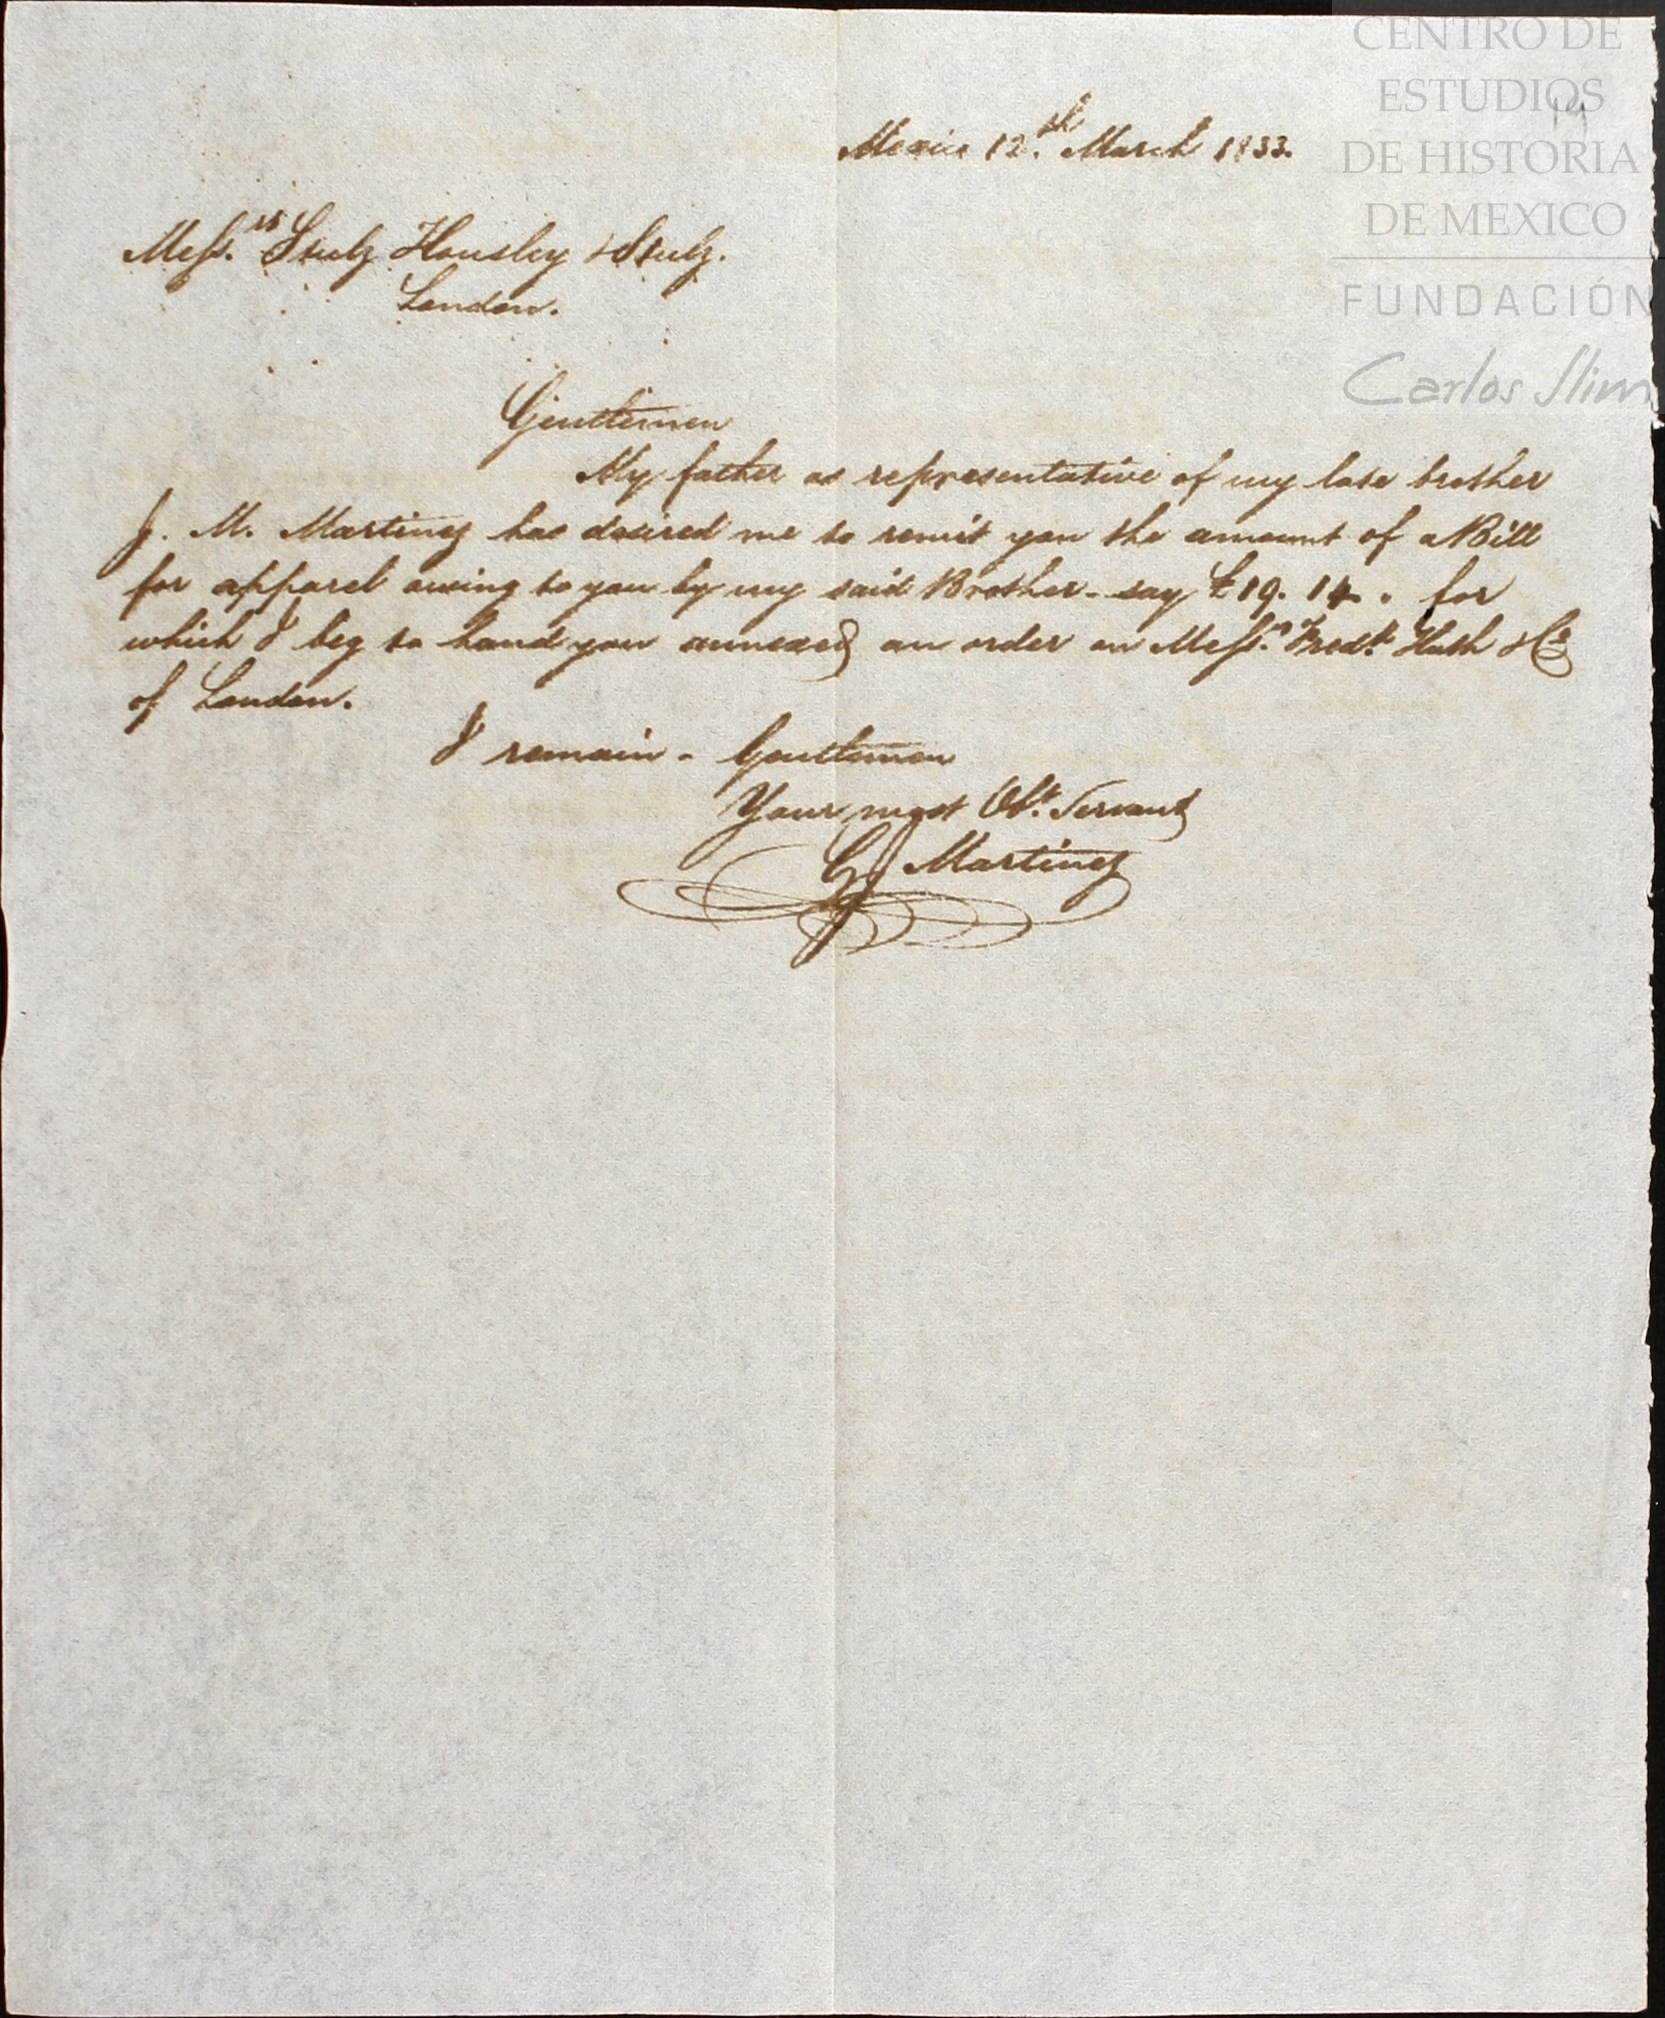 CENTRO DE
ESTUDIOS
DE HISTORIA
DE MEXICO
FUNDACIÓN
Carlos Slim
19
Mexico 12.th March 1833.
Mess.rs Stulz Housley & Stulz.
London.
Gentlemen
My father as representative of my late brother
J. M. Martinez has desired me to remit you the amount of a Bill
for apparel owing to you by my said Brother - say £19. 14. . for
which I beg to hand you annexed an order on Mess.rs Fredk. Huth & Co
of London.
I remain - Gentlemen
Your most Obt. Servant
G Martinez